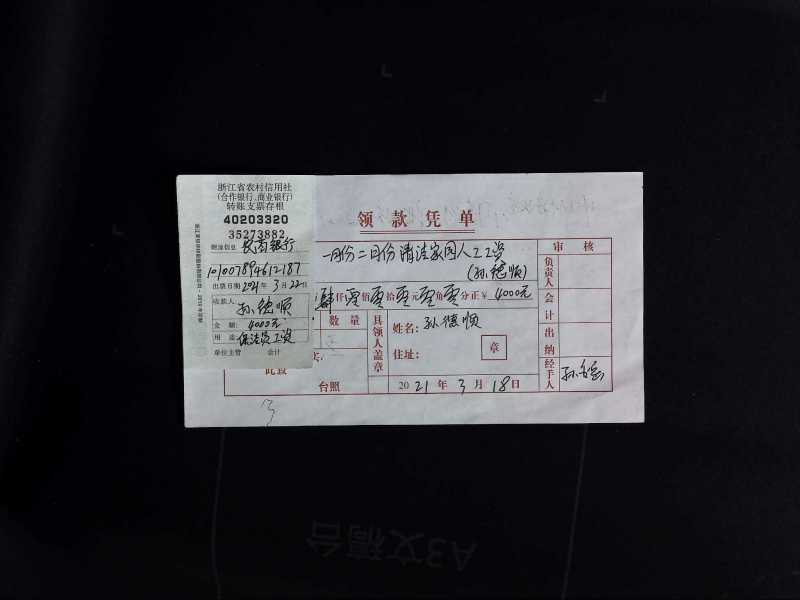 浙江省农村信用社
(合作银行、商业银行)
转账支票存根
40203320
35273882
附加信息 农商银行
101007894612187
出票日期 2021年 3月 22日
收款人: 孙德顺
金 额: 4000元
用 途: 保洁员工资
单位主管 会计
领款凭单
一月份二月份清洁家园人工工资
(孙德顺)
肆仟零佰零拾零元零角零分正¥ 4000元
数量
具领人盖章
姓名: 孙德顺
住址:
章
此致
台照
2021年 3月 18日
审 核
负责人
会计
出纳
经手人
A3文稿台